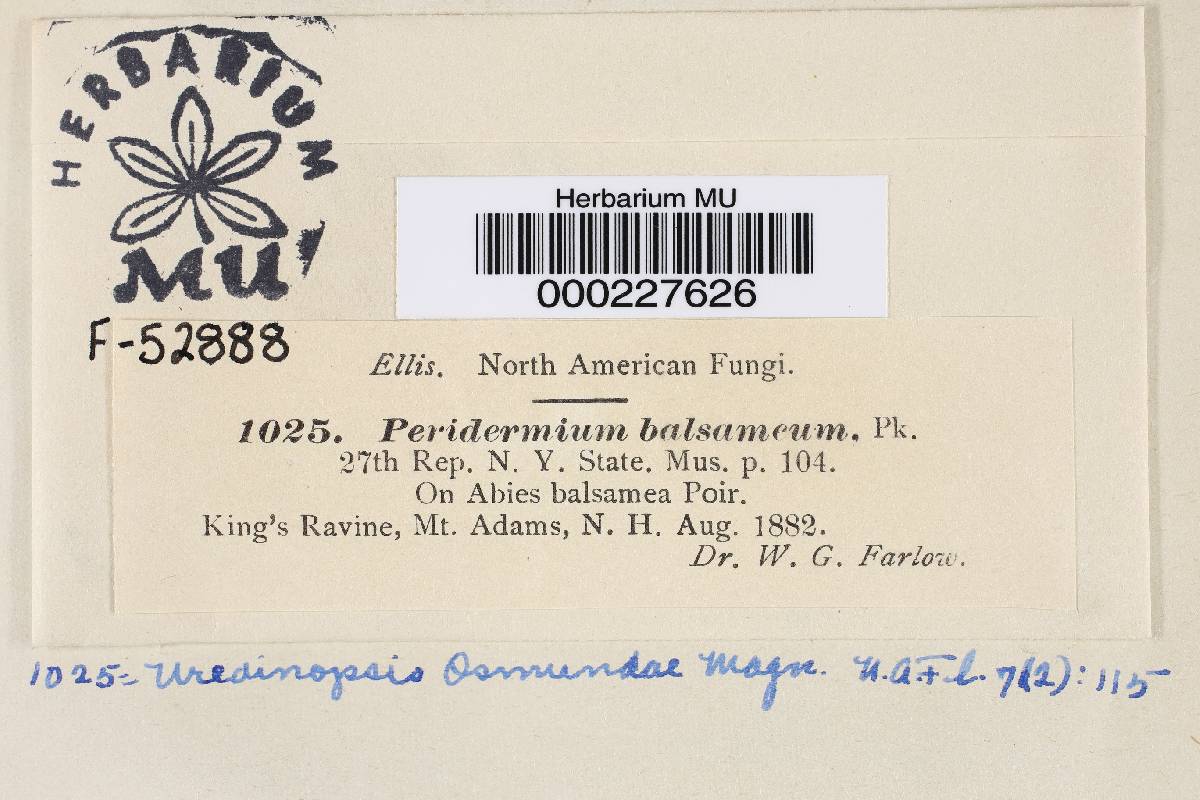 HERBARIUM
MU
Herbarium MU
000227626
F-52888
Ellis. North American Fungi.
1025. Peridermium balsameum. Pk.
27th Rep. N. Y. State. Mus. p. 104.
On Abies balsamea Poir.
King's Ravine, Mt. Adams, N. H. Aug. 1882.
Dr. W. G. Farlow.
1025= Uredinopsis Osmundae Magn. N.A.F.l. 7(2):115